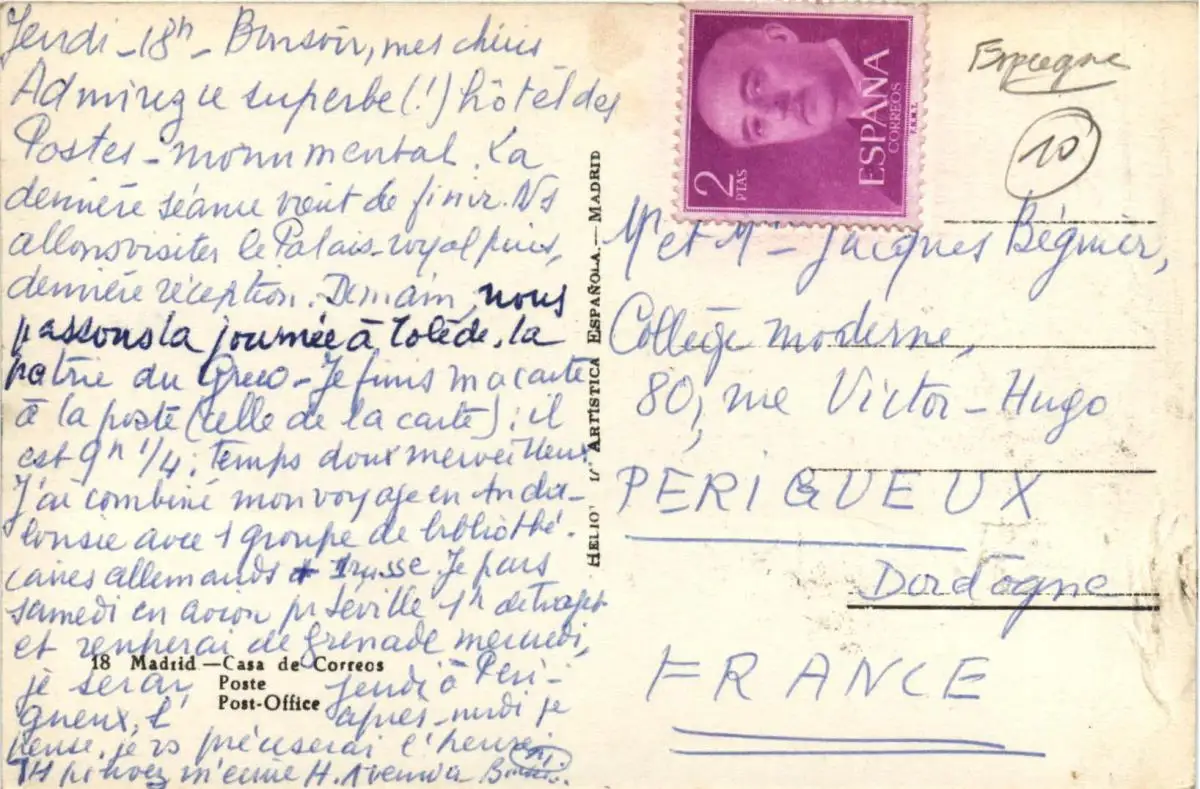 Jeudi - 18h - Bonsoir, mes chéris
Admirez ce superbe (!) hôtel des
Postes - monumental. La
dernière séance vient de finir. Ns
allons visiter le Palais-royal puis,
dernière réception. Demain, nous
passons la journée à Tolède, la
patrie du Greco - Je finis ma carte
à la poste (celle de la carte); il
est 9h 1/4; temps doux merveilleux.
J'ai combiné mon voyage en Anda-
lousie avec 1 groupe de bibliothé-
caires allemands et 1 russe. Je pars
samedi en avion pr Séville 1h de trajet
et rentrerai de Grenade mercredi,
je serai jeudi à Péri-
gueux, l' après-midi je
pense, je vs préciserai l'heure.
pouvez m'écrire H. Avenida
18 Madrid — Casa de Correos
Poste
Post-Office
HELIO ARTÍSTICA ESPAÑOLA. — MADRID
2
PTAS
ESPAÑA
CORREOS
F.N.M.T.
Espagne
10
Mr et Me Jacques Bégnier,
Collège moderne,
80, rue Victor-Hugo
PÉRIGUEUX
Dordogne
FRANCE